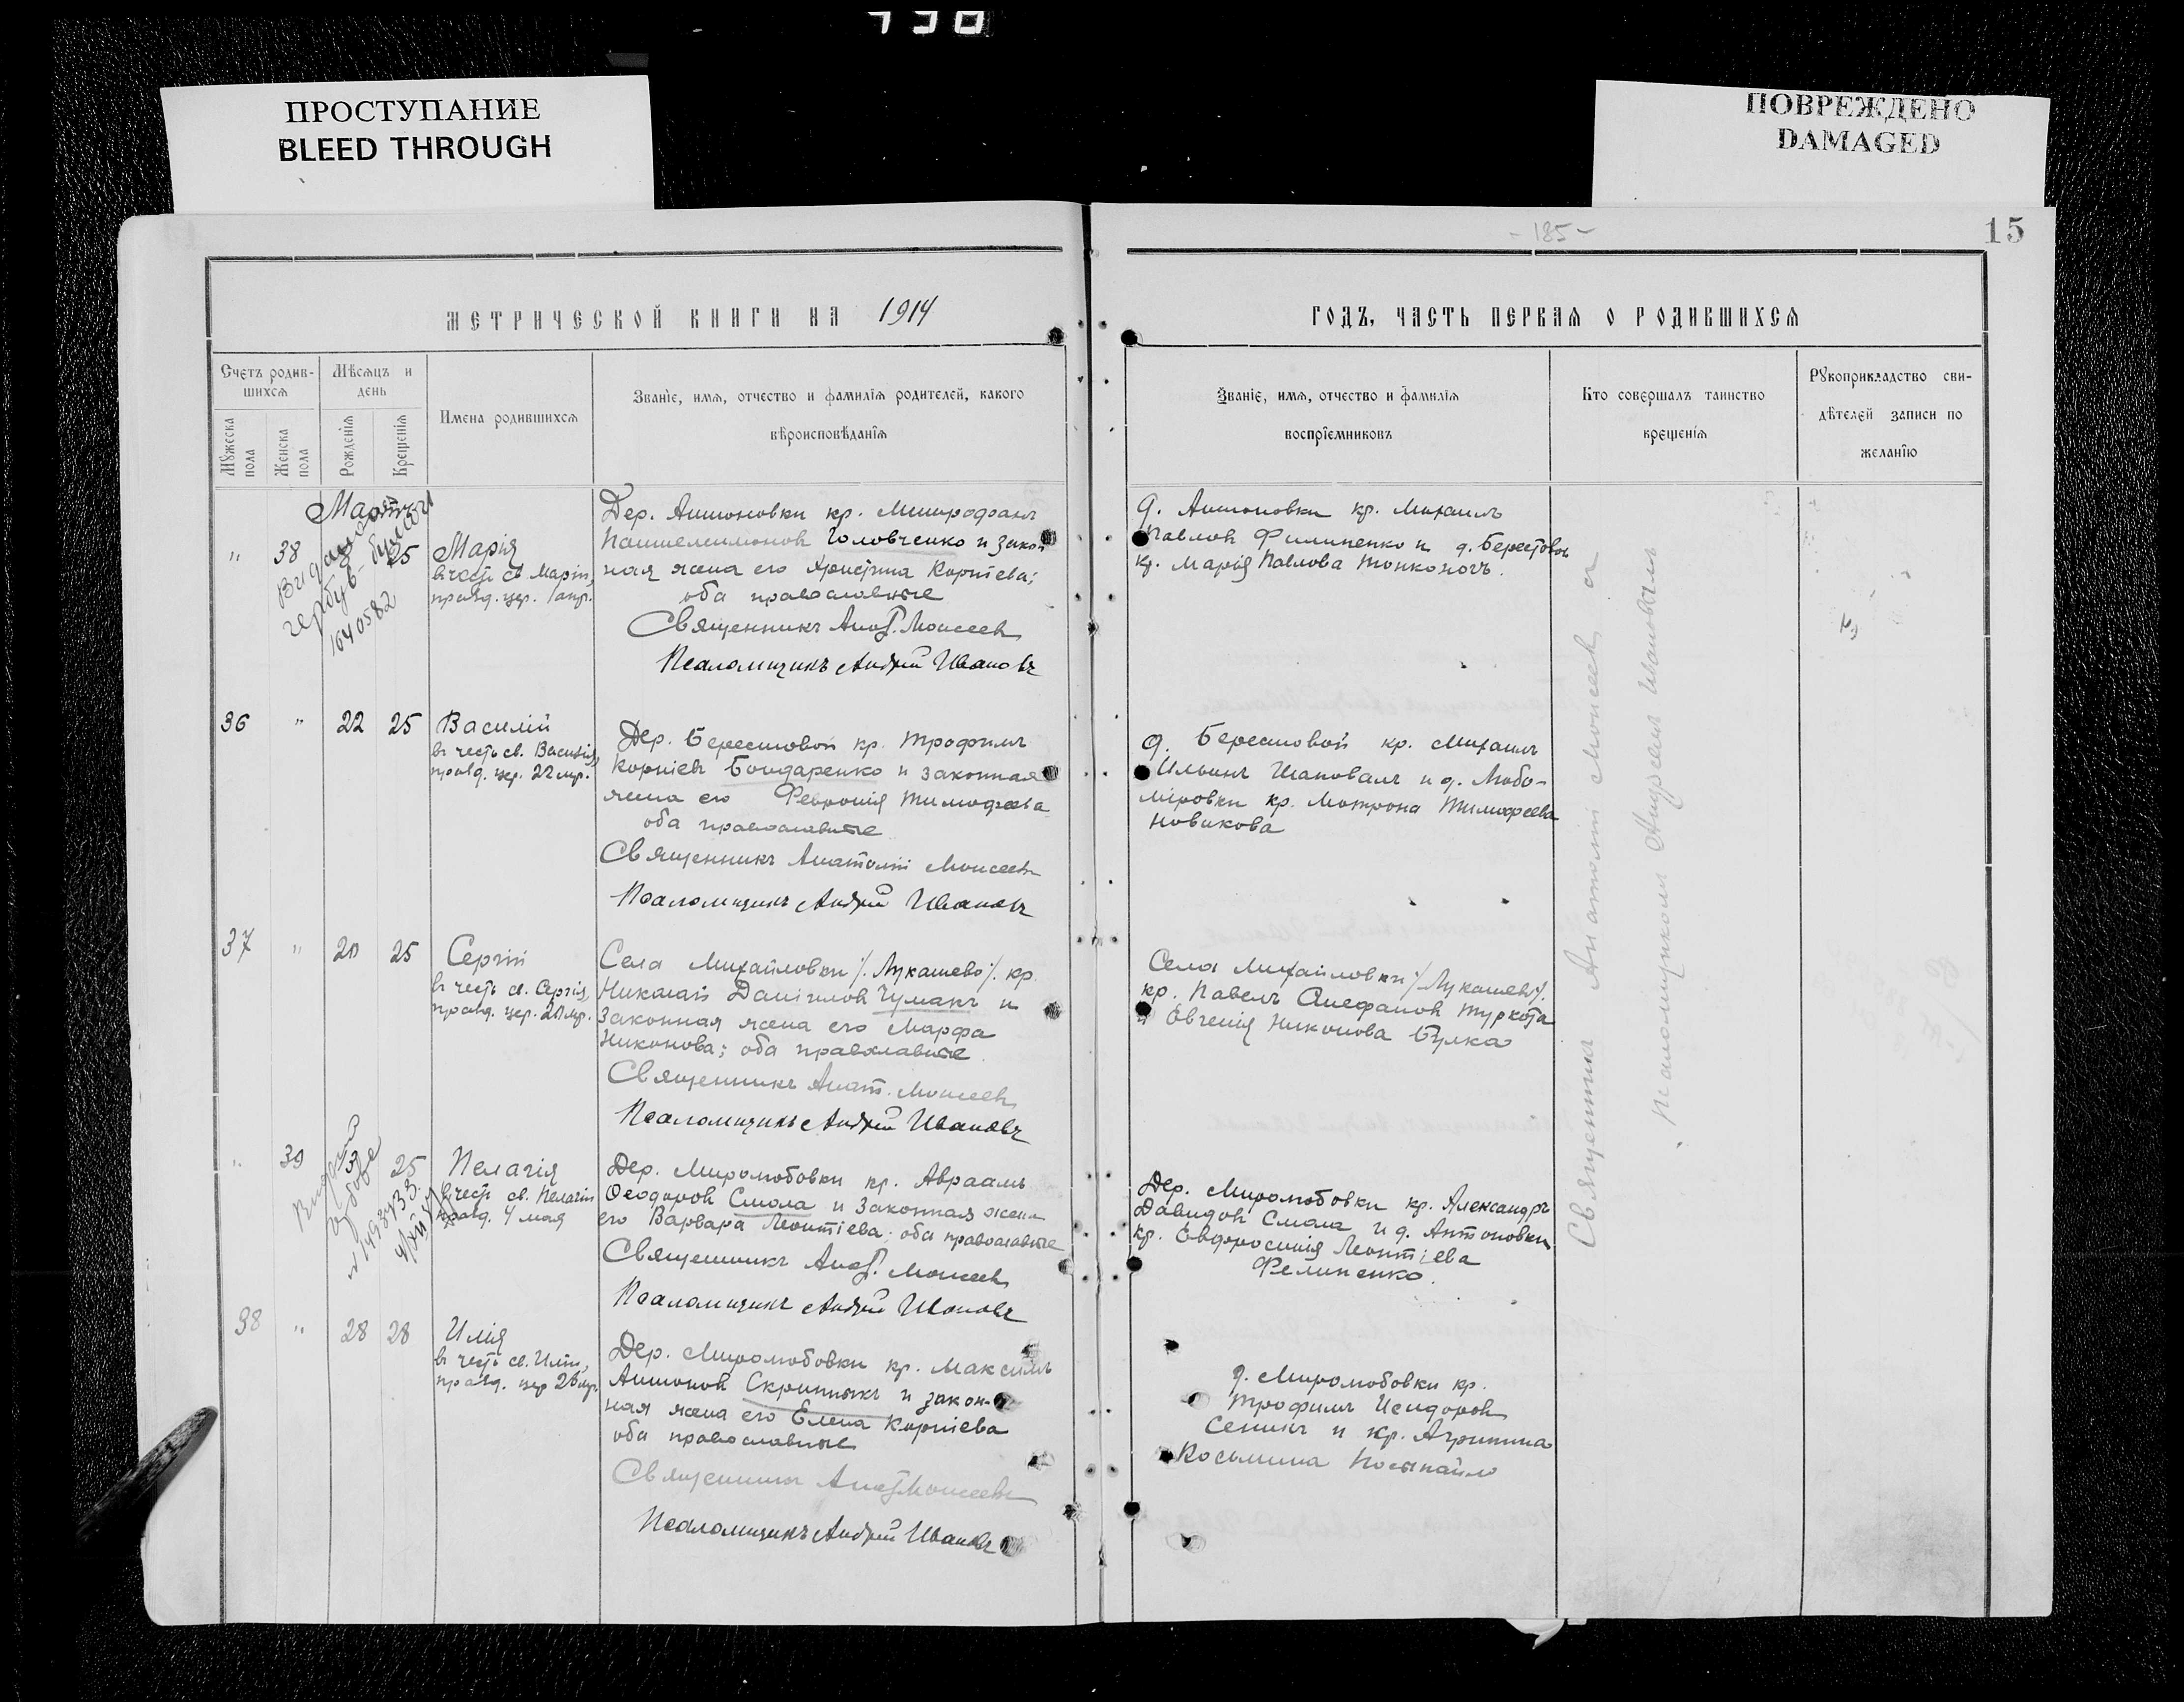 ПРОСТУПАНИЕ
BLEED THROUGH
ПОВРЕЖДЕНО
DAMAGED
15
- 185 -
МЕТРИЧЕСКОЙ КНИГИ НА 1914
ГОДЪ, ЧАСТЬ ПЕРВАЯ О РОДИВШИХСЯ
Счетъ родив-
шихся
Мужеска пола
Женска пола
Мѣсяцъ и
день
Рожденія
Крещенія
Имена родившихся
Званіе, имя, отчество и фамилія родителей, какого
вѣроисповѣданія
Званіе, имя, отчество и фамилія
воспріемниковъ
Кто совершалъ таинство
крещенія
Рукоприкладство сви-
дѣтелей записи по
желанію
Мартъ
" 38 25 Марія
въ честь св. Маріи,
празд. цер. 1 апр.
1640582
Дер. Антоновки кр. Митрофанъ
Пантелеимоновъ Головченко и закон
ная жена его Христина Корніева;
оба православные
Священникъ Анат. Моисеевъ
Псаломщикъ Андрей Ивановъ
д. Антоновки кр. Михаилъ
Павловъ Филипенко и д. Берестовой
кр. Марія Павлова Тонконогъ.
36 " 22 25 Василій
въ честь св. Василія,
празд. цер. 22 мр.
Дер. Берестовой кр. Трофимъ
Корніевъ Бондаренко и законная
жена его Февронія Тимофеева
оба православные
Священникъ Анатолій Моисеевъ
Псаломщикъ Андрей Ивановъ
д. Берестовой кр. Михаилъ
Ильинъ Шаповалъ и д. Любо-
міровки кр. Мотрона Тимофеева
Новикова
37 " 20 25 Сергій
въ честь св. Сергія,
празд. цер. 20 мр.
Села Михайловки /. Лукашево /. кр.
Николай Даніиловъ Чумакъ и
законная жена его Марфа
Никонова; оба православные.
Священникъ Анат. Моисеевъ
Псаломщикъ Андрей Ивановъ
Села Михайловки /. Лукашево /.
кр. Павелъ Стефановъ Туркота
и Евгенія Никонова Булка
" 39 3 25 Пелагія
въ честь св. Пелагіи
празд. 4 мая
Дер. Миролюбовки кр. Авраамъ
Ѳеодоровъ Смола и законная жена
его Варвара Леонтіева; оба православные
Священникъ Анат. Моисеевъ
Псаломщикъ Андрей Ивановъ
Дер. Миролюбовки кр. Александръ
Давидовъ Смола и д. Антоновки
кр. Евфросинія Леонтіева
Фелипенко.
38 " 28 28 Илія
въ честь св. Иліи,
празд. цер. 28 мр.
Дер. Миролюбовки кр. Максимъ
Антоновъ Скрипникъ и закон-
ная жена его Елена Корніева
оба православные
Священникъ Анат. Моисеевъ
Псаломщикъ Андрей Ивановъ
д. Миролюбовки кр.
Трофимъ Исидоровъ
Сеникъ и кр. Агрипина
Косьмина Посыпайло
Священникъ Анатолій Моисеевъ а
псаломщикомъ Андреемъ Ивановымъ